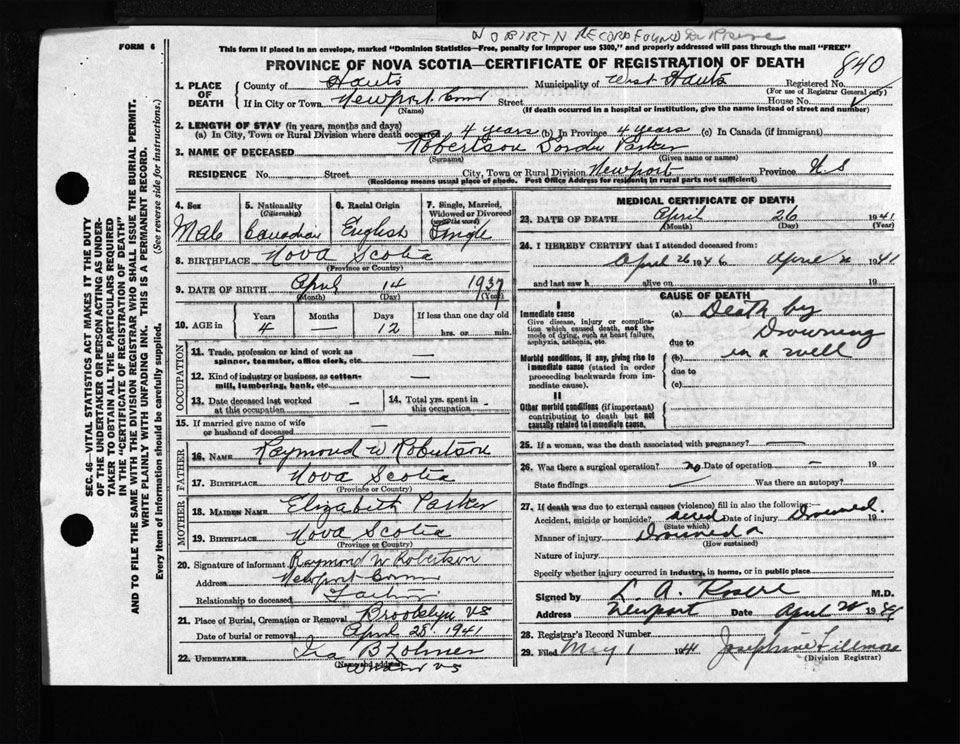 NO BIRTH RECORD FOUND
FORM 6
This form if placed in an envelope, marked "Dominion Statistics—Free, penalty for improper use $300," and properly addressed will pass through the mail "FREE"
PROVINCE OF NOVA SCOTIA—CERTIFICATE OF REGISTRATION OF DEATH
840
1. PLACE OF DEATH
County of Hants Municipality of West Hants Registered No.
(For use of Registrar General only)
If in City or Town Newport Corner Street House No.
(Name) (If death occurred in a hospital or institution, give the name instead of street and number)
2. LENGTH OF STAY (in years, months and days)
(a) In City, Town or Rural Division where death occurred 4 years (b) In Province 4 years (c) In Canada (if immigrant)
3. NAME OF DECEASED Robertson Gordon Parker
(Surname) (Given name or names)
RESIDENCE No. Street City, Town or Rural Division Newport Province N S
(Residence means usual place of abode. Post Office Address for residents in rural parts not sufficient)
4. Sex 5. Nationality (Citizenship) 6. Racial Origin 7. Single, Married, Widowed or Divorced (write the word)
Male Canadian English Single
8. BIRTHPLACE Nova Scotia
(Province or Country)
9. DATE OF BIRTH April 14 1937
(Month) (Day) (Year)
10. AGE in Years Months Days If less than one day old
4 — 12 hrs. or min.
OCCUPATION
11. Trade, profession or kind of work as spinner, teamster, office clerk, etc. —
12. Kind of industry or business, as cotton-mill, lumbering, bank, etc. —
13. Date deceased last worked at this occupation — 14. Total yrs. spent in this occupation —
15. If married give name of wife or husband of deceased —
FATHER
16. NAME Raymond W Robertson
17. BIRTHPLACE Nova Scotia
(Province or Country)
MOTHER
18. MAIDEN NAME Elizabeth Parker
19. BIRTHPLACE Nova Scotia
(Province or Country)
20. Signature of informant Raymond W Robertson
Address Newport Corner
Relationship to deceased Father
21. Place of Burial, Cremation or Removal Brooklyn NS
Date of burial or removal April 28, 1941
22. UNDERTAKER Ira B
(Name and address)
MEDICAL CERTIFICATE OF DEATH
23. DATE OF DEATH April 26 1941
(Month) (Day) (Year)
24. I HEREBY CERTIFY that I attended deceased from:
April 26 194 to April 1941
and last saw h alive on 19
CAUSE OF DEATH
I
Immediate cause
Give disease, injury or complication which caused death, not the mode of dying, such as heart failure, asphyxia, asthenia, etc.
(a) Death by Drowning
due to
Morbid conditions, if any, giving rise to immediate cause (stated in order proceeding backwards from immediate cause).
(b) in a well
due to
(c)
II
Other morbid conditions (if important) contributing to death but not causally related to immediate cause.
25. If a woman, was the death associated with pregnancy? —
26. Was there a surgical operation? no Date of operation — 19
State findings Was there an autopsy?
27. If death was due to external causes (violence) fill in also the following:
Accident, suicide or homicide? Date of injury Drowned 19
(State which)
Manner of injury Drowned
(How sustained)
Nature of injury
Specify whether injury occurred in industry, in home, or in public place
Signed by M.D.
Address Newport Date April 19
28. Registrar's Record Number
29. Filed May 1 1941 Josephine Fillmore
(Division Registrar)
SEC. 46—VITAL STATISTICS ACT MAKES IT THE DUTY OF THE UNDERTAKER OR PERSON ACTING AS UNDERTAKER TO OBTAIN ALL THE PARTICULARS REQUIRED IN THE "CERTIFICATE OF REGISTRATION OF DEATH" AND TO FILE THE SAME WITH THE DIVISION REGISTRAR WHO SHALL ISSUE THE BURIAL PERMIT.
WRITE PLAINLY WITH UNFADING INK. THIS IS A PERMANENT RECORD.
Every item of information should be carefully supplied. (See reverse side for instructions.)